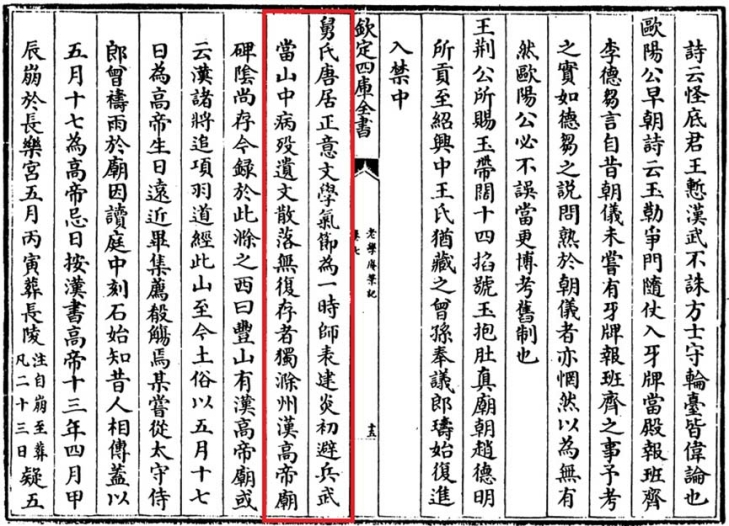 詩云怪底君王慙漢武不誅方士守輪臺皆偉論也
歐陽公早朝詩云玉勒爭門隨仗入牙牌當殿報班齊
李德芻言自昔朝儀未嘗有牙牌報班齊之事予考
之實如德芻之說問熟於朝儀者亦惘然以為無有
然歐陽公必不誤當更博考舊制也
王荆公所賜玉帶闊十四掐號玉抱肚真廟朝趙德明
所貢至紹興中王氏猶藏之曽孫奉議郎璹始復進
入禁中
欽定四庫全書
老學庵筆記
卷七
十五
舅氏唐居正意文學氣節為一時師表建炎初避兵武
當山中病歿遺文散落無復存者獨滁州漢高帝廟
碑陰尚存今録於此滁之西曰豐山有漢高帝廟或
云漢諸將追項羽道經此山至今土俗以五月十七
日為高帝生日遠近畢集薦殽觴焉某嘗從太守侍
郎曽禱雨於廟因讀庭中刻石始知昔人相傳蓋以
五月十七為高帝忌日按漢書高帝十三年四月甲
辰崩於長樂宮五月丙寅葬長陵注自崩至葬凡二十三日疑五